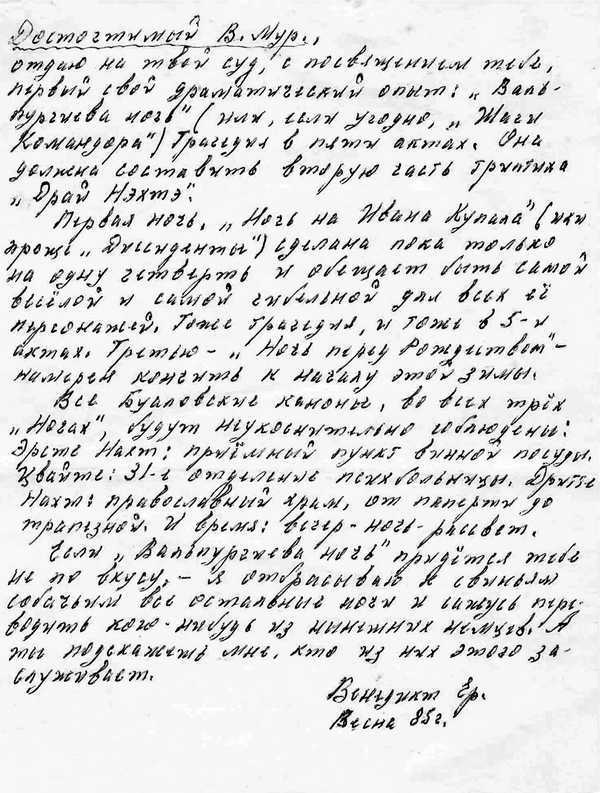 Досточтимый В. Мур.,
отдаю на твой суд, с посвящением тебе,
первый свой драматический опыт: „Валь-
пургиева ночь" (или, если угодно, „Шаги
Командора") Трагедия в пяти актах. Она
должна составить вторую часть триптиха
„Драй Нэхтэ".
Первая ночь, „Ночь на Ивана Купала" (или
проще „Диссиденты") сделана пока только
на одну четверть и обещает быть самой
весёлой и самой гибельной для всех её
персонажей. Тоже трагедия, и тоже в 5-и
актах. Третью – „Ночь перед Рождеством" –
намерен кончить к началу этой зимы.
Все Буаловские каноны, во всех трёх
„Ночах", будут неукоснительно соблюдены:
Эрсте Нахт: приёмный пункт винной посуды.
Цвайте: 31-е отделение психбольницы. Дритте
Нахт: православный храм, от паперти до
трапезной. И время: вечер-ночь-рассвет.
Если „Вальпургиева ночь" придётся тебе
не по вкусу, – я отбрасываю к свиньям
собачьим все остальные ночи и сажусь пере-
водить кого-нибудь из нынешних немцев. А
ты подскажешь мне, кто из них этого за-
служивает.
Венедикт Ер.
Весна 85г.